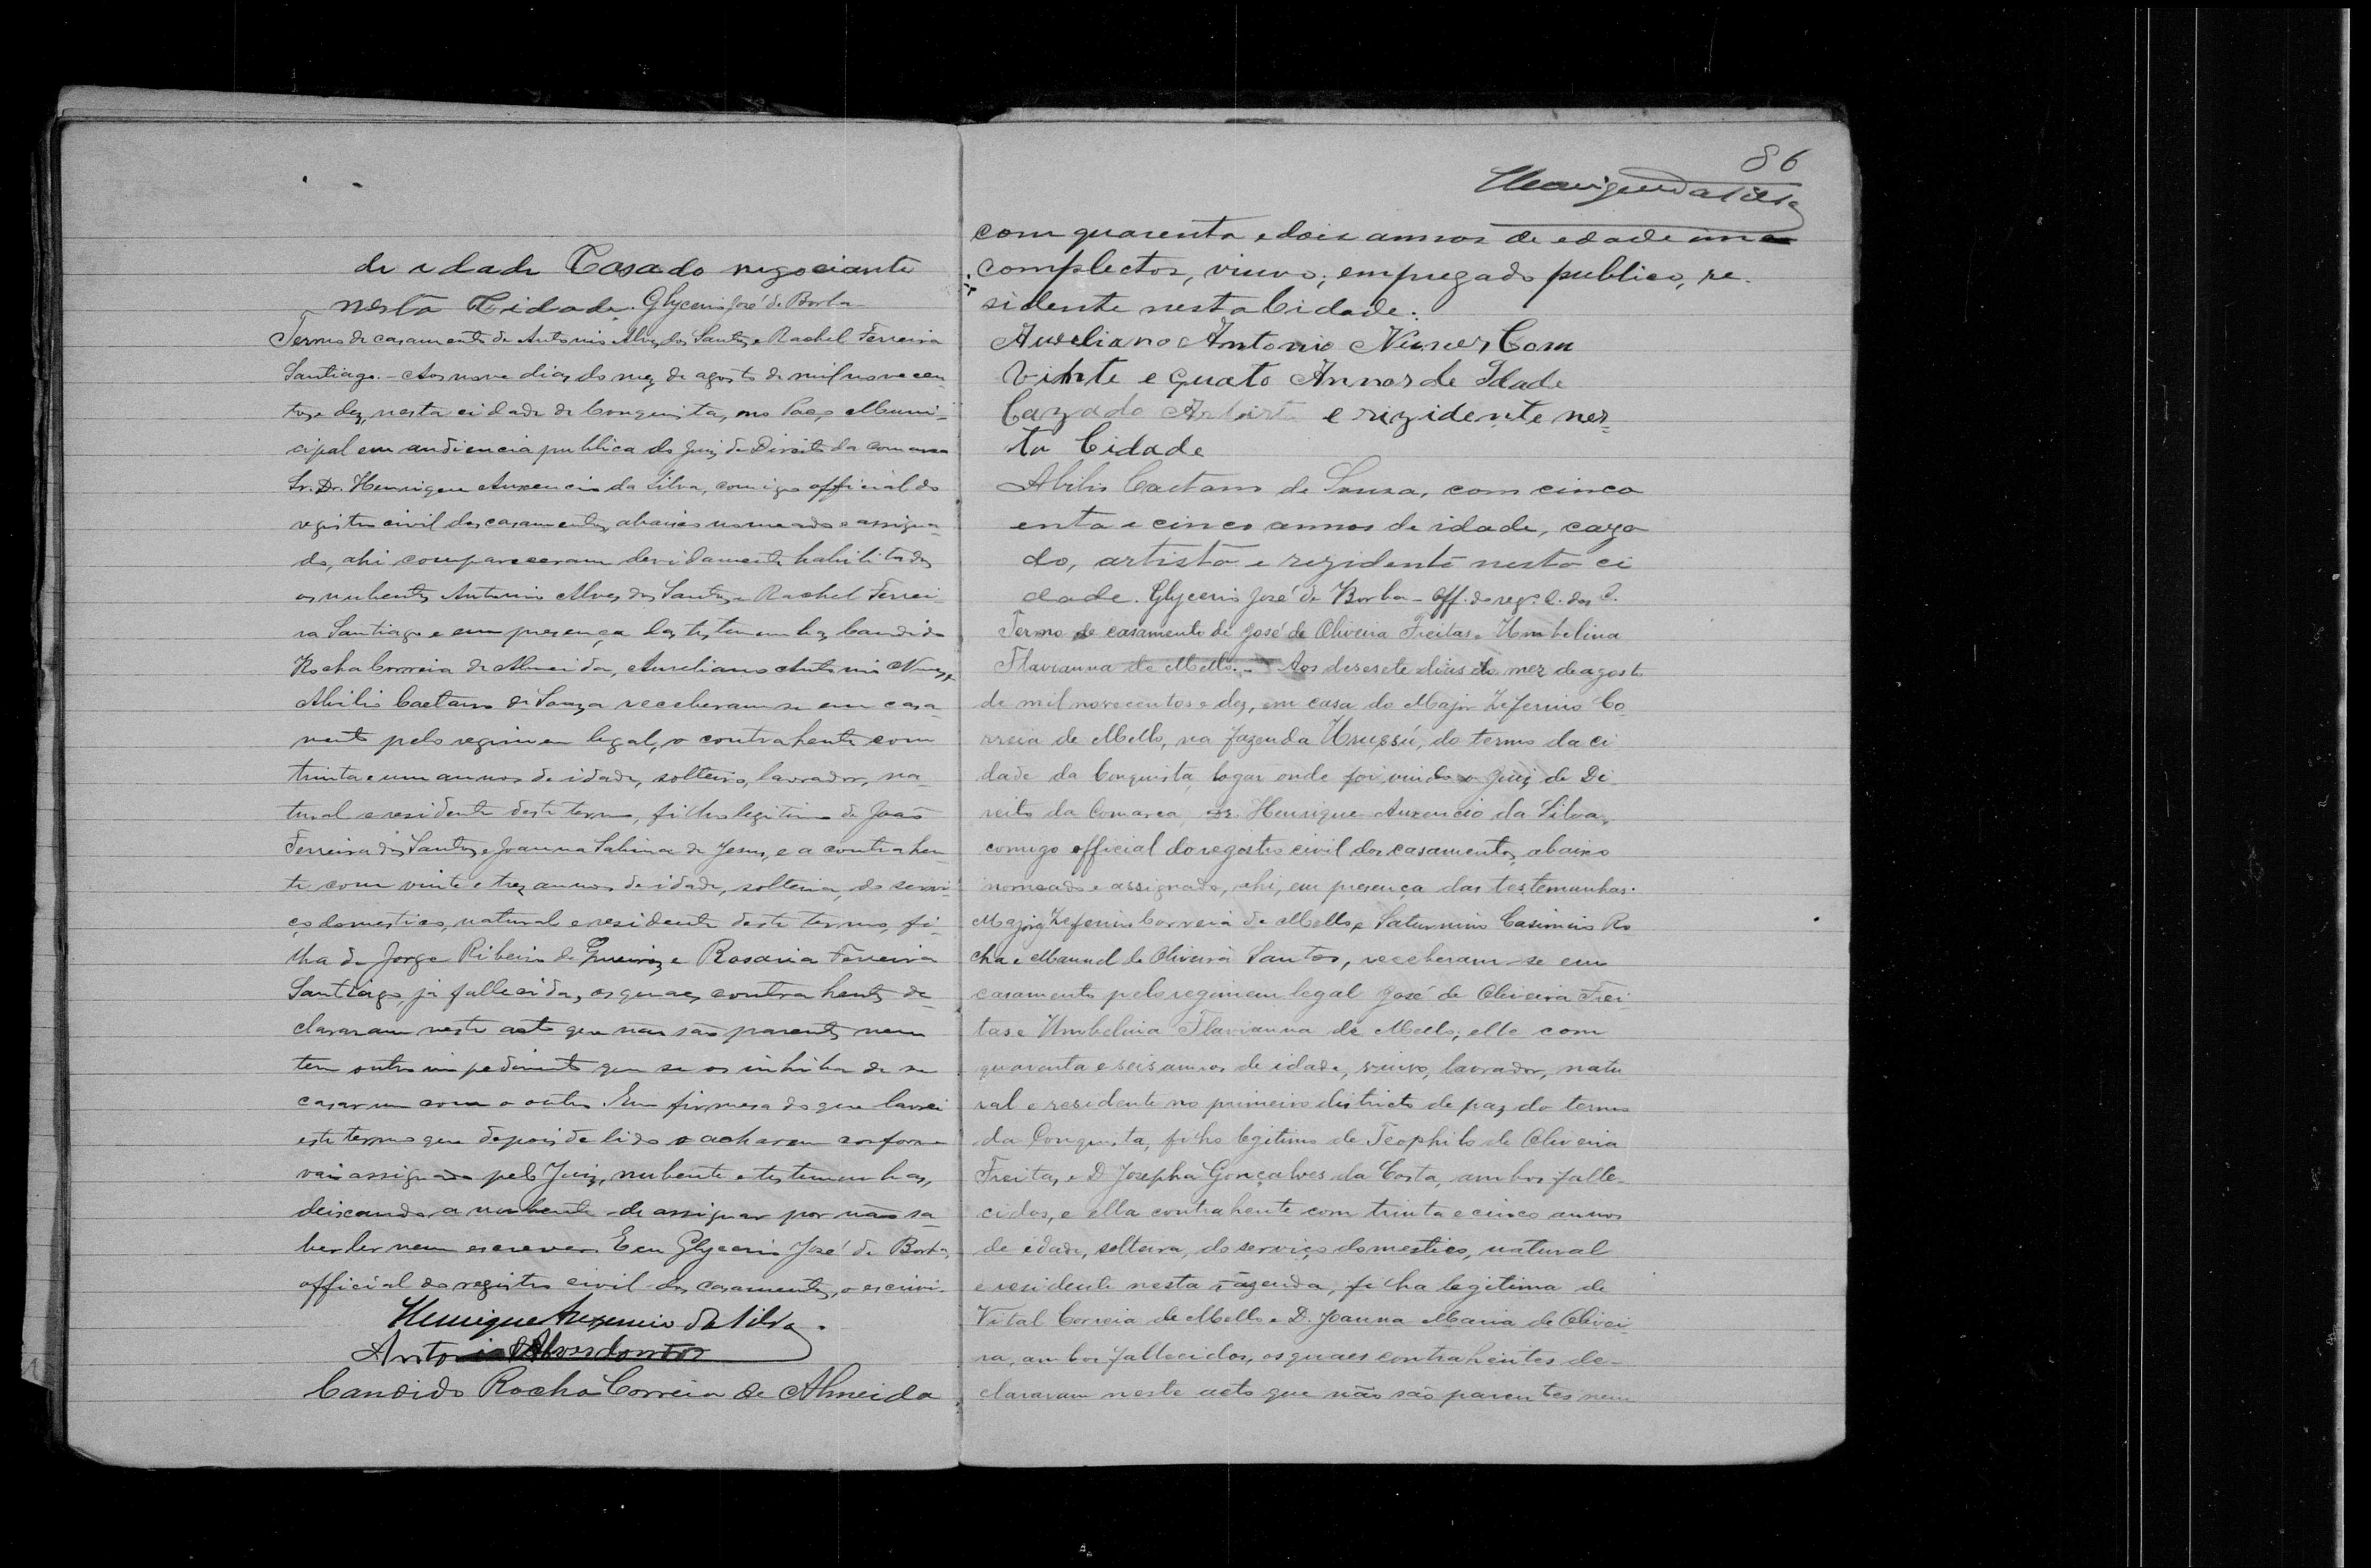 de idade Casado negociante
nesta Cidade. Glycerio José de Borba
Termo de casamento de Antonio Alves dos Santos e Rachel Ferreira
Santiago. - Aos nove dias do mez de agosto de mil novecen-
tos e dez, nesta cidade de Conquista, no Paço Muni-
cipal em audiencia publica do Juiz de Direito da Comarca
Sr. Dr. Henrique Auxencio da Silva, comigo official do
registro civil dos casamentos, abaixo nomeado e assigna-
do, ahi compareceram devidamente habilitados
os nubentes Antonio Alves dos Santos e Rachel Ferrei-
ra Santiago e em presença das testemunhas Candido
Rocha Correia de Almeida, Aureliano Antonio Nunes e
Abilio Caetano de Souza receberam-se em casa-
mento pelo regimen legal, o contrahente com
trinta e um annos de idade, solteiro, lavrador, na-
tural e residente deste termo, filho legitimo de João
Ferreira dos Santos e Joanna Sabina de Jesus, e a contrahen-
te com vinte e trez annos de idade, solteira, do servi-
ço domestico, natural e residente deste termo, fi-
lha de Jorge Ribeiro de e Rosaria Ferreira
Santiago, já fallecida, os quaes contrahentes de
clararam neste acto que não são parentes nem
tem outro impedimento que se os inhiba de se
casar um com o outro. Em firmesa do que lavrei
este termo que depois de lido e acharem conforme
vai assignado pelo Juiz, nubente e testemunhas,
deixando a nubente de assignar por não sa-
ber ler nem escrever. Eu Glycerio José de Borba,
official do registro civil dos casamentos, o escrivi.
Henrique Auxencio da Silva.
Antonio Alves dos Santos
Candido Rocha Correia de Almeida
86
Henrique da Silva
com quarenta e dois annos de edade in
complectos, viuvo, empregado publico, re-
sidente nesta Cidade.
Aureliano Antonio Nunes Com
Vinhte e quato Annos de Idade
Cazado Artista e rizidente nes=
ta Cidade
Abilio Caetano de Souza, com cinco
enta e cinco annos de idade, caza
do, artista e rezidente nesta ci
dade. Glycerio José de Borba - Off. do reg.º C. dos C.
Termo de casamento de José de Oliveira Freitas e Umbelina
Flavianna de Mello. - Aos desesete dias do mez de agosto
de mil novecentos e dez, em casa do Major Zeferino Co-
rreia de Mello, na fazenda Urussú, do termo da ci
dade da Conquista, logar onde foi vindo o Juiz de Di-
reito da Comarca, Dr. Henrique Auxencio da Silva,
comigo official do registro civil dos casamentos, abaixo
nomeado e assignado, ahi, em presença das testemunhas.
Major Zeferino Correia de Mello e Saturnino Casimiro Ro
cha e Manoel de Oliveira Santos, receberam-se em
casamento pelo regimem legal José de Oliveira Frei-
tas e Umbelina Flavianna de Mello; elle com
quarenta e seis annos de idade, viuvo, lavrador, natu
ral e residente no primeiro districto de paz do termo
da Conquista, filho legitimo de Teophilo de Oliveira
Freitas e D. Josepha Gonçalves da Costa, ambos falle-
cidos, e ella contrahente com trinta e cinco annos
de edade, solteira, do serviço domestico, natural
e residente nesta fazenda, filha legitima de
Vital Correia de Mello e D. Joanna Maria de Olivei-
ra, ambos fallecidos, os quaes contrahentes de-
clararam neste acto que não são parentes nem